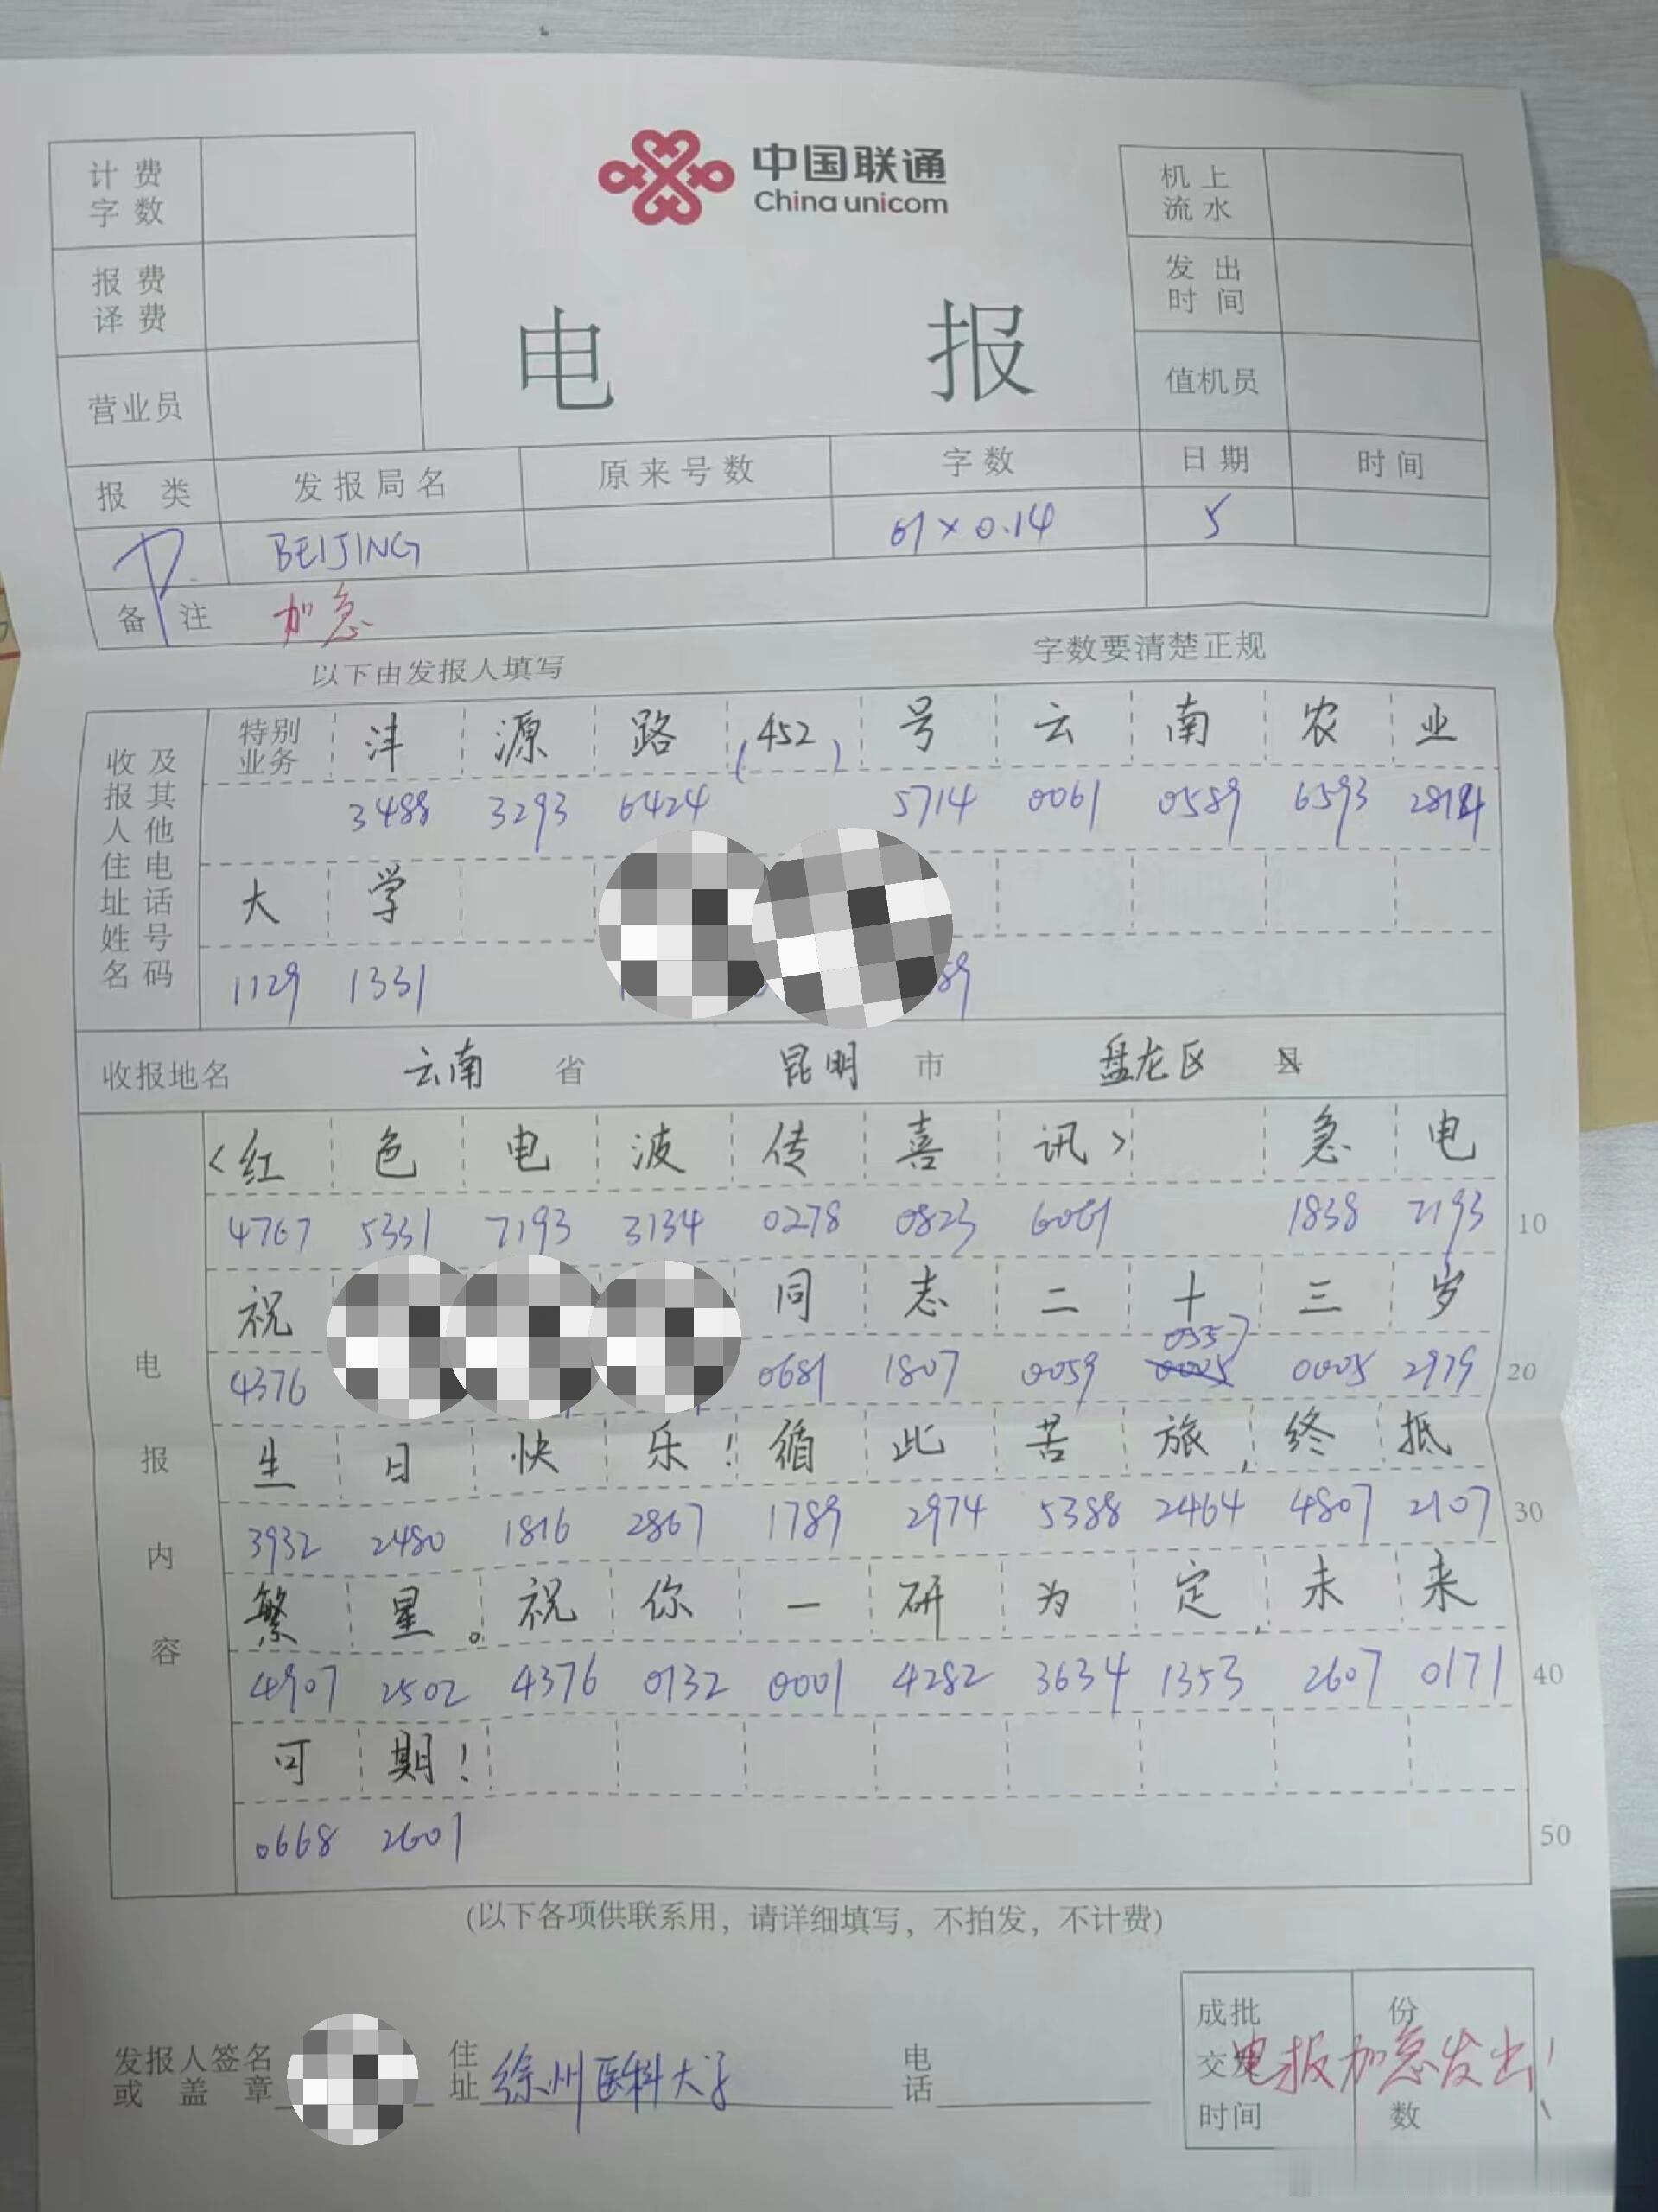 中国联通
China unicom
计费字数
机上流水
报费译费
发出时间
营业员
值机员
电报
报类 发报局名 原来号数 字数 日期 时间
BEIJING 61×0.14 5
备注 加急
以下由发报人填写 字数要清楚正规
收报人住址姓名及其他电话号码
特别业务 沣 源 路 (452) 号 云 南 农 业
3488 3293 6424 5714 0061 0589 6593
大 学
1129 1331
收报地名 云南 省 昆明 市 盘龙区 县
电报内容
<红 色 电 波 传 喜 讯> 急 电
4767 5331 7193 3134 0278 0823 6061 1838 7193 10
祝 同 志 二 十 三 岁
0357
4376 0681 1807 0059 0025 0005 2979 20
生 日 快 乐! 循 此 苦 旅, 终 抵
3932 2480 1816 2867 1789 2974 5388 2464 4807 2107 30
繁 星。 祝 你 一 研 为 定, 未 来
4907 2502 4376 0132 0001 4282 3634 1353 2607 0171 40
可 期!
0668 2601 50
(以下各项供联系用，请详细填写，不拍发，不计费)
发报人签名或盖章 住址 徐州医科大学 电话
成批交发时间 份数
电报加急发出!